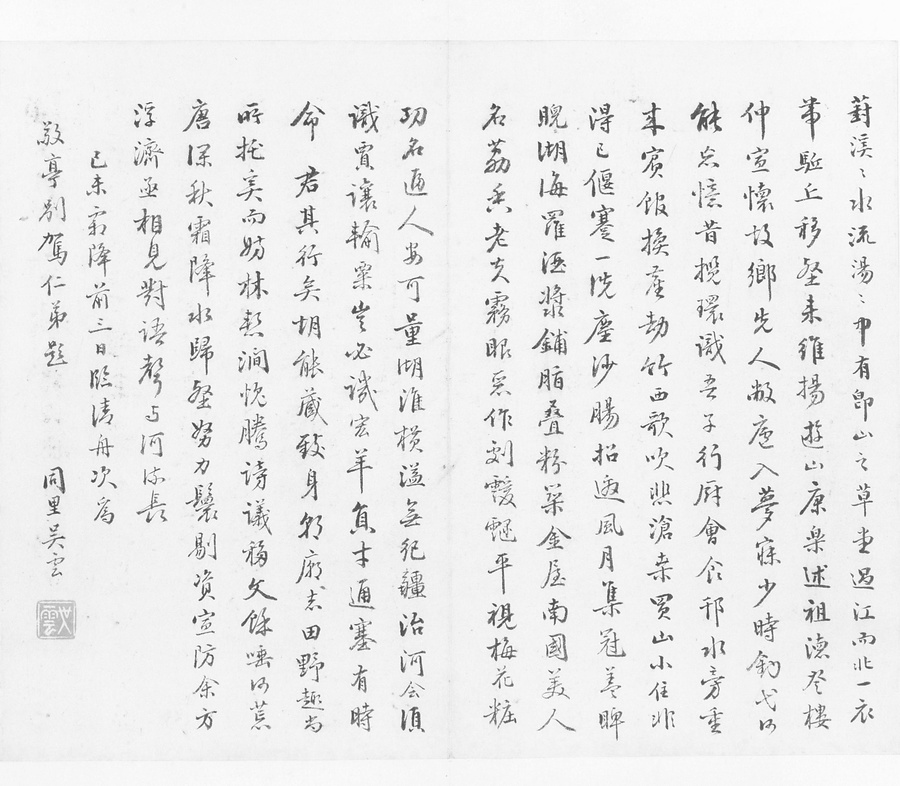 葑溪〻水流湯〻中有即山之草堂過江而北一衣
帶駈丘移壑来維揚遊山康樂述祖德登樓
仲宣懷故鄉先人敝廬入夢寐少時釣弋何
能忘憶昔攬環識吾子行厨會食邗水旁重
来賓館換塵劫竹西歌吹悲滄桒買山小住非
得已偃蹇一洗塵沙腸招邀風月集冠蓋睥
睨湖海羅酒漿鋪脂疊粉築金屋南國美人
名荔香老夫霧眼惡作劇靉靆平視梅花粧
功名逼人安可量湖淮横溢無紀疆治河會須
識賈讓輸粟豈必誠宏羊負才通塞有時
命君其行矣胡能藏致身廊廟志田野趣尚
所托矣而妨林慙澗愧騰謗議移文餘唾何荒
唐深秋霜降水歸壑努力鬢剔資宣防余方
浮濟亟相見對語聲与河流長
己未霜降前三日臨清舟次為
敬亭別駕仁弟題 同里吴雲